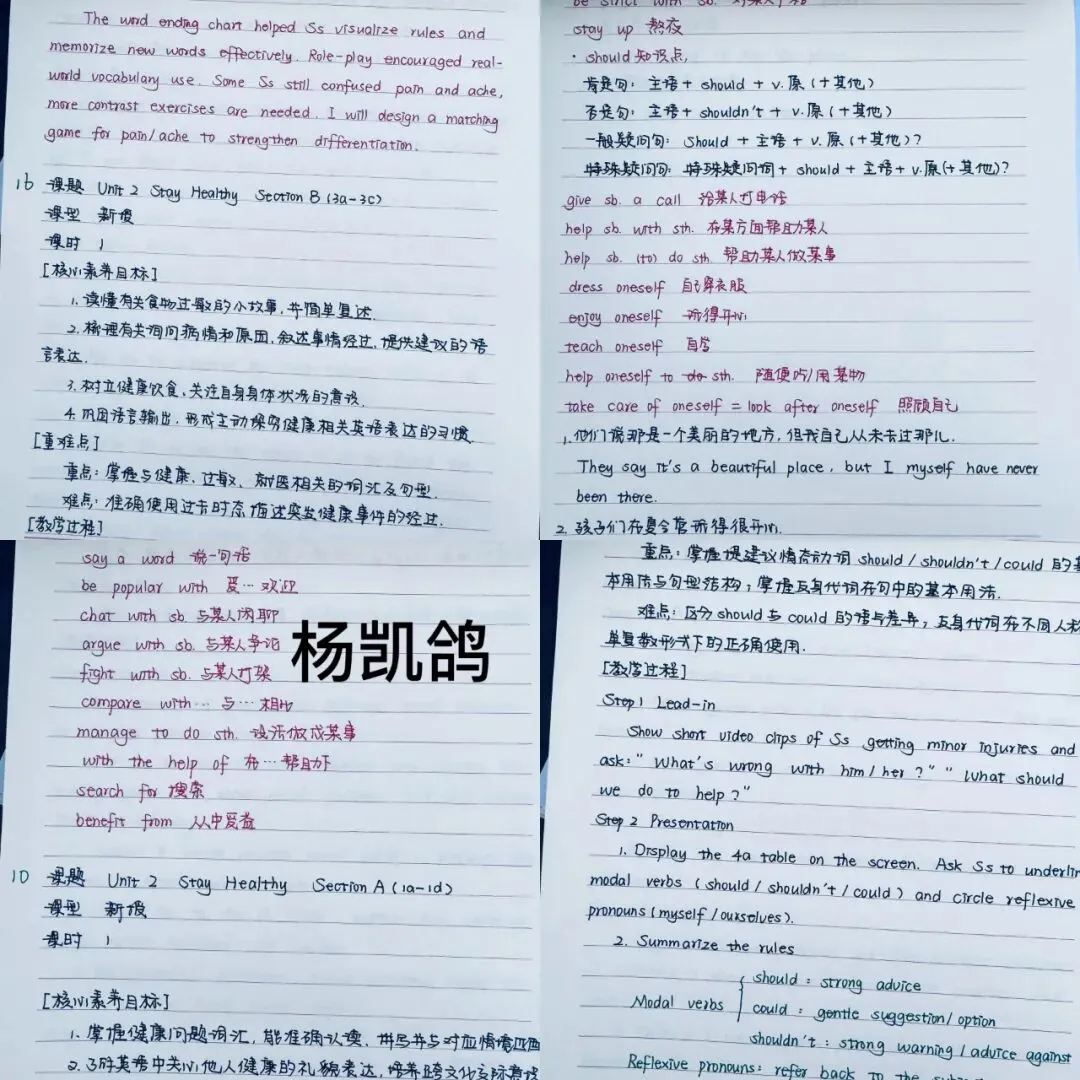 The word ending chart helped Ss visualize rules and
memorize new words effectively. Role-play encouraged real-
world vocabulary use. Some Ss still confused pain and ache,
more contrast exercises are needed. I will design a matching
game for pain/ache to strengthen differentiation.
16 课题 Unit 2 Stay Healthy Section B (3a-3c)
课型 新授
课时 1
[核心素养目标]
1. 读懂有关食物过敏的小故事,并简单复述.
2. 梳理有关询问病情和原因,叙述事情经过,提供建议的语
言表达.
3. 树立健康饮食,关注自身身体状况的意识.
4. 巩固语言输出,形成主动探究健康相关英语表达的习惯.
[重难点]
重点:掌握与健康、过敏、就医相关的词汇及句型.
难点:准确使用过去时态描述突发健康事件的经过.
[教学过程]
be strict with sb.
stay up 熬夜
·should知识点,
肯定句:主语+should+v.原(+其他)
否定句:主语+shouldn't+v.原(+其他)
一般疑问句:Should+主语+v.原(+其他)?
特殊疑问句:特殊疑问词+should+主语+v.原(+其他)?
give sb. a call 给某人打电话
help sb. with sth. 在某方面帮助某人
help sb. (to) do sth. 帮助某人做某事
dress oneself 自己穿衣服
enjoy oneself 玩得开心
teach oneself 自学
help oneself to do sth. 随便吃/用某物
take care of oneself = look after oneself 照顾自己
1. 他们说那是一个美丽的地方,但我自己从未去过那儿.
They say it's a beautiful place, but I myself have never
been there.
2. 孩子们在夏令营玩得很开心.
say a word 说一句话
be popular with 受…欢迎
chat with sb. 与某人闲聊
argue with sb. 与某人争论
fight with sb. 与某人打架
compare with… 与…相比
manage to do sth. 设法做成某事
with the help of 在…帮助下
search for 搜索
benefit from 从中受益
杨凯鸽
10 课题 Unit 2 Stay Healthy Section A (1a-1d)
课型 新授
课时 1
[核心素养目标]
1. 掌握健康问题词汇,能准确认读、拼写并与对应情境匹配
2. 了解英语中关心他人健康的礼貌表达,培养跨文化交际意识
重点:掌握提建议情态动词should/shouldn't/could的基
本用法与句型结构;掌握反身代词在句中的基本用法.
难点:区分should与could的语气差异,反身代词在不同人称
单复数形式下的正确使用.
[教学过程]
Step 1 Lead-in
Show short video clips of Ss getting minor injuries and
ask:"What's wrong with him/her?" "What should
we do to help?"
Step 2 Presentation
1. Display the 4a table on the screen. Ask Ss to underlin
modal verbs (should/shouldn't/could) and circle reflexive
pronouns (myself/ourselves).
2. Summarize the rules
should: strong advice
Modal verbs
could: gentle suggestion/option
shouldn't: strong warning/advice against
Reflexive pronouns: refer back to the